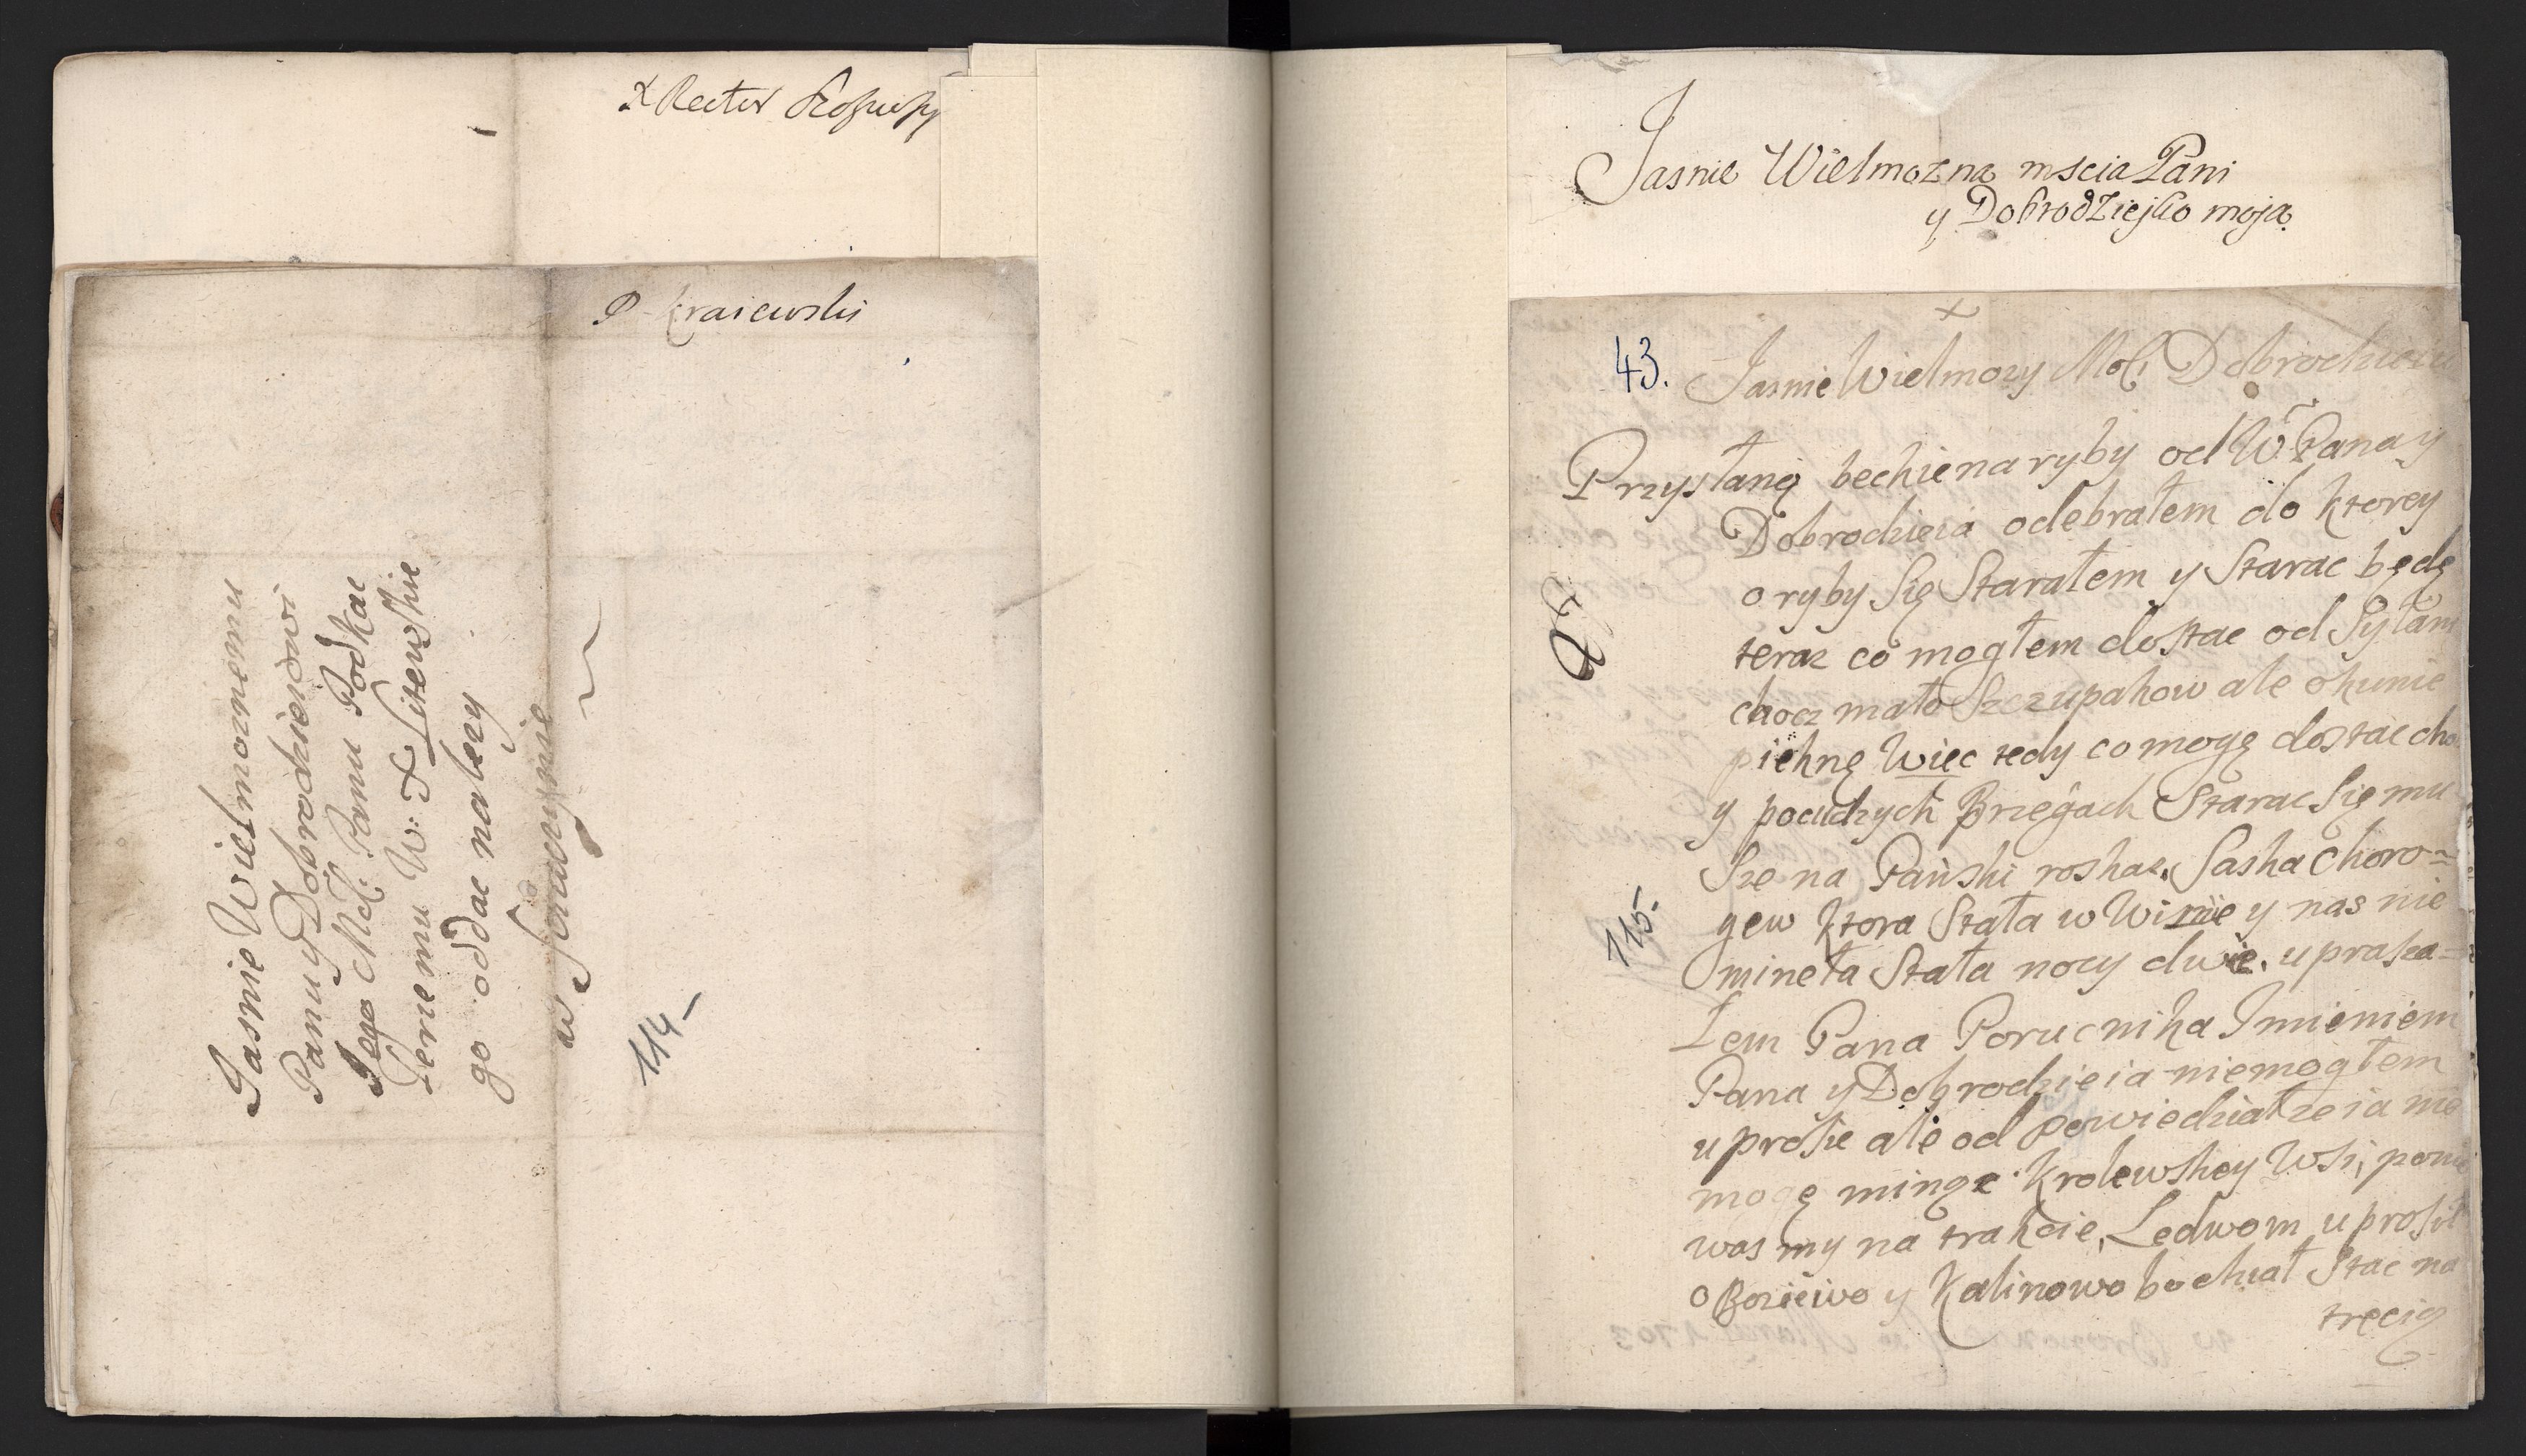 X Rector
P Kraiewski
Jasnie Wielmoznemu
Panu y Dobrodzieiowi
Jego Mci Panu Podkac
lerzemu W: X Litewskie
go oddac nalezy
w
114-
Jasnie Wielmozna mscia Pani
y Dobrodziejko moja
x
43. Jasnie Wielmozy Mos: Dobrodzieiu
Przysłaną beckie na ryby od W Pana y
Dobrodzieia odebrałem do ktorey
o ryby Się Starałem y Starac będę
teraz co mogłem dostac od Syłam
chocz mało Szczupakow ale okunie
piekne Więc tedy co mogę dostac cho
y pocudzych Brzegach Starac Się mu
Sze na Pański roskaz. Saska Choro=
gew Ktora Stała w Wiznie y nas nie
115-
mineła Stała nocy dwie. uprasza=
Łem Pana Porucnika Imieniem
Pana y Dobrodzieia niemogłem
uprosic ale od powiedział ze ia nie
mogę minąc Krolewskey Wsi, ponie
was my na trakcie, Ledwom uprosił
o Bozieivo y Kalinowo bo chciał Stac na
trecią